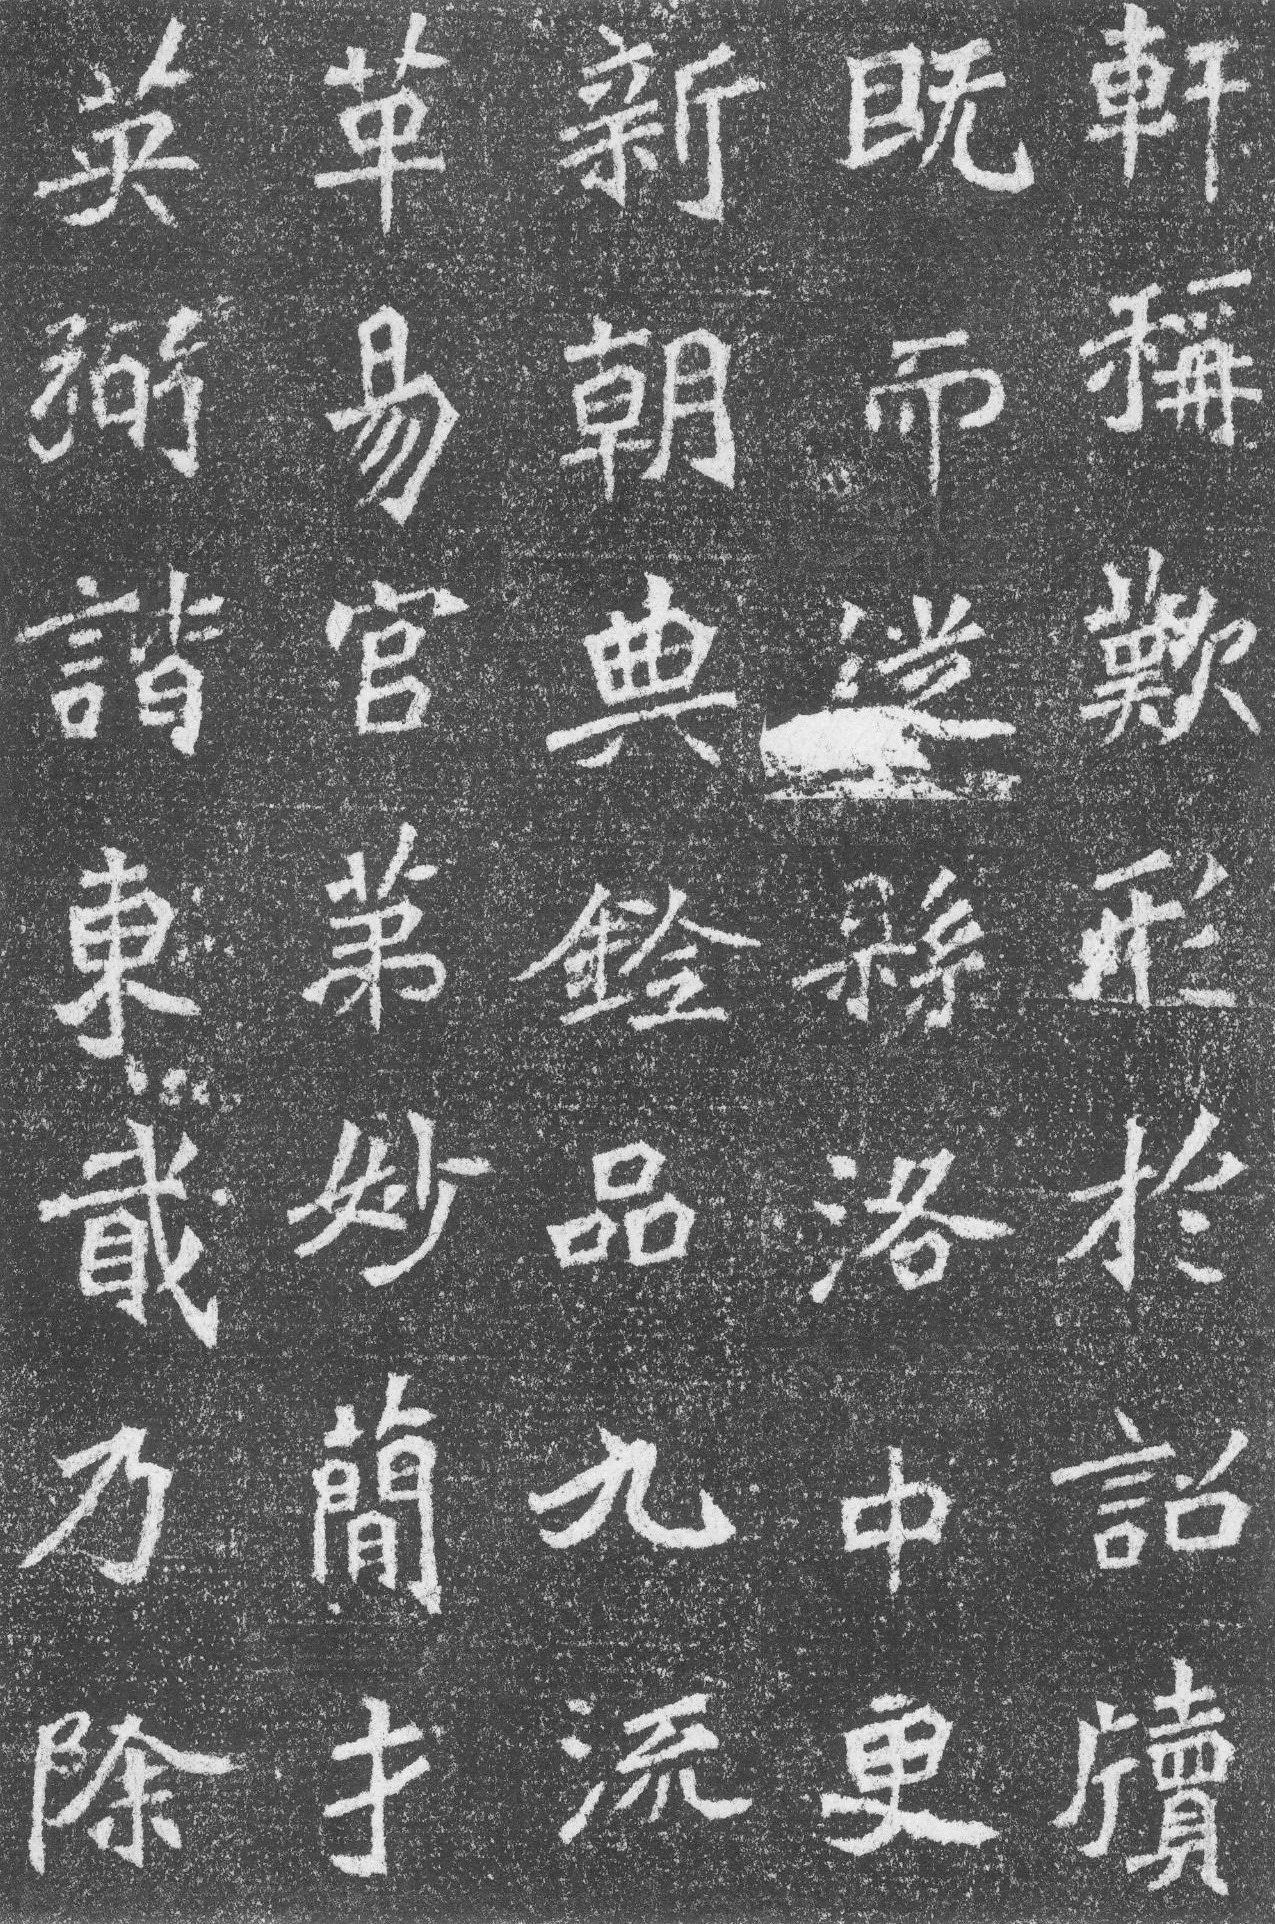 軒稱歎形於詔牘
既而縣洛中更
新朝典銓品九流
革易官第妙簡才
英弼諧東貳乃除